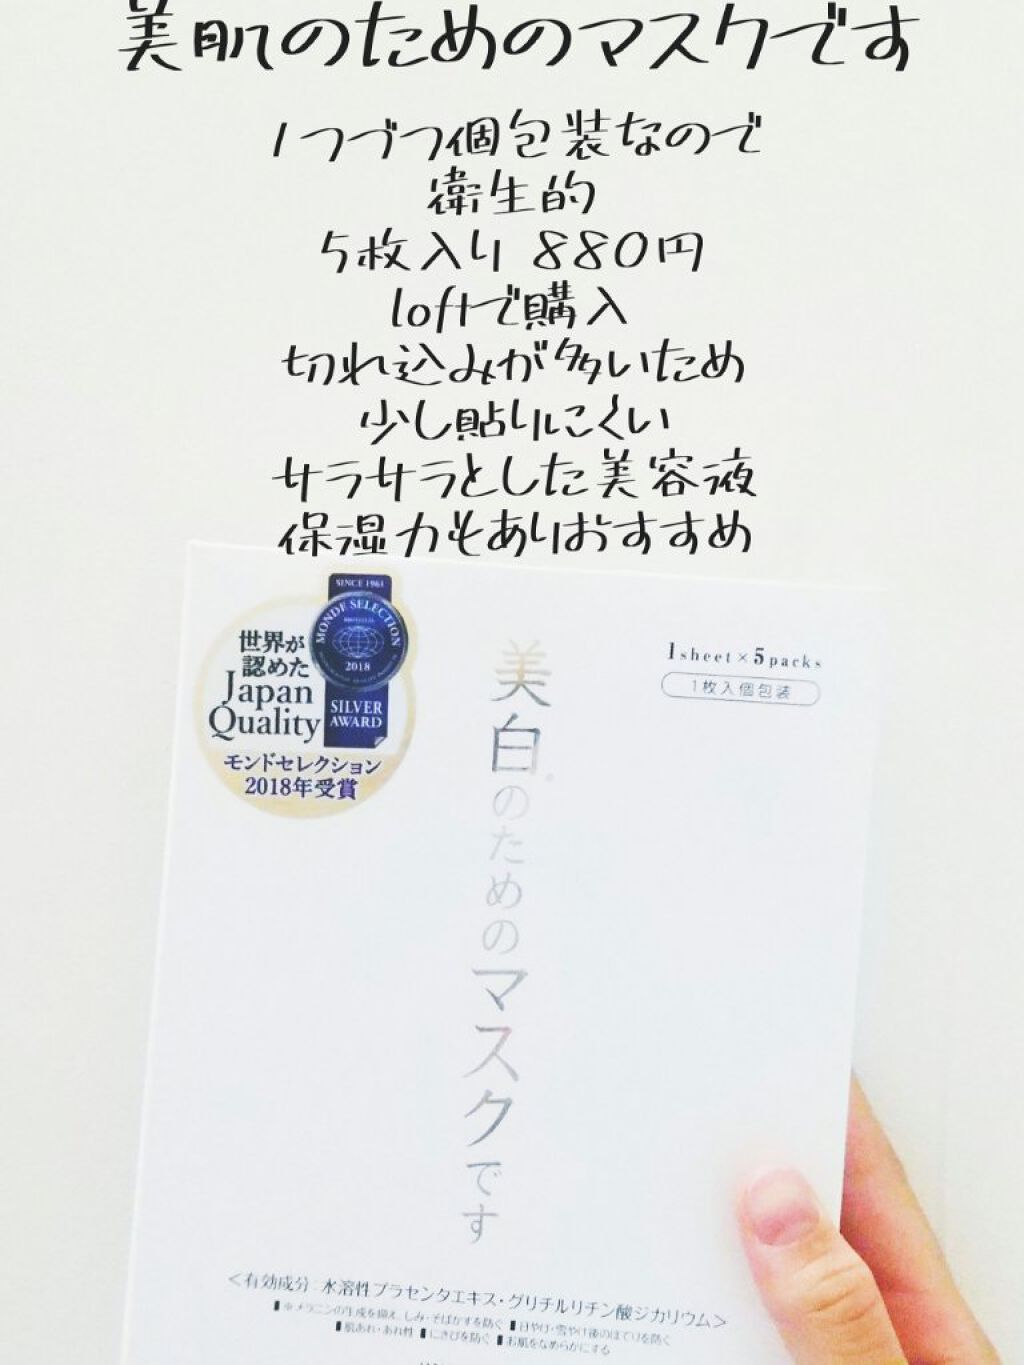 美肌のためのマスクです
1つづつ個包装なので
衛生的
5枚入り 880円
loftで購入
切れ込みが多いため
少し貼りにくい
サラサラとした美容液
保湿力もありおすすめ
SINCE 1961
MONDE SELECTION
2018
SILVER
AWARD
世界が
認めた
Japan
Quality
モンドセレクション
2018年受賞
1sheet×5packs
1枚入個包装
美白*のためのマスクです
<有効成分:水溶性プラセンタエキス・グリチルリチン酸ジカリウム>
■※メラニンの生成を抑え、しみ・そばかすを防ぐ ■日やけ・雪やけ後のほてりを防ぐ
■肌あれ・あれ性 ■にきびを防ぐ ■お肌をなめらかにする